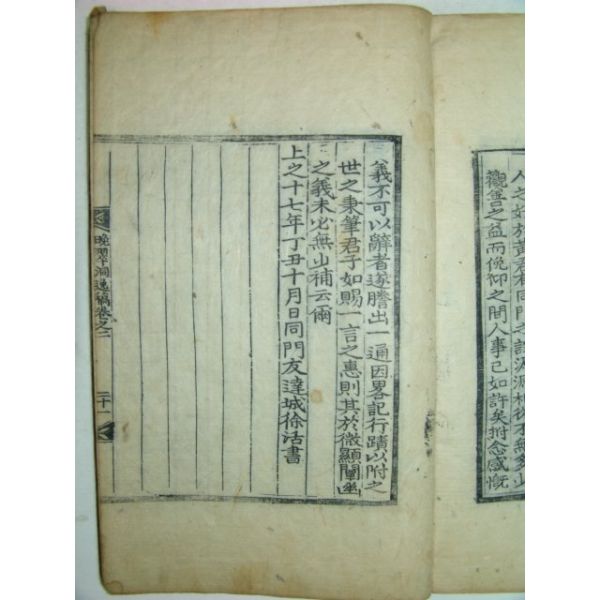 人之如於黃君有同門之誼淵源相從不無多少
觀善之益而俛仰之間人事已如許矣拊念感慨
義不可以辭者遂謄出一通因畧記行蹟以附之
世之秉筆君子如賜一言之惠則其於微顯闡幽
之義未必無少補云爾
上之十七年丁丑十月日同門友達城徐活書
晚翠洞逸稿卷之二
二十一